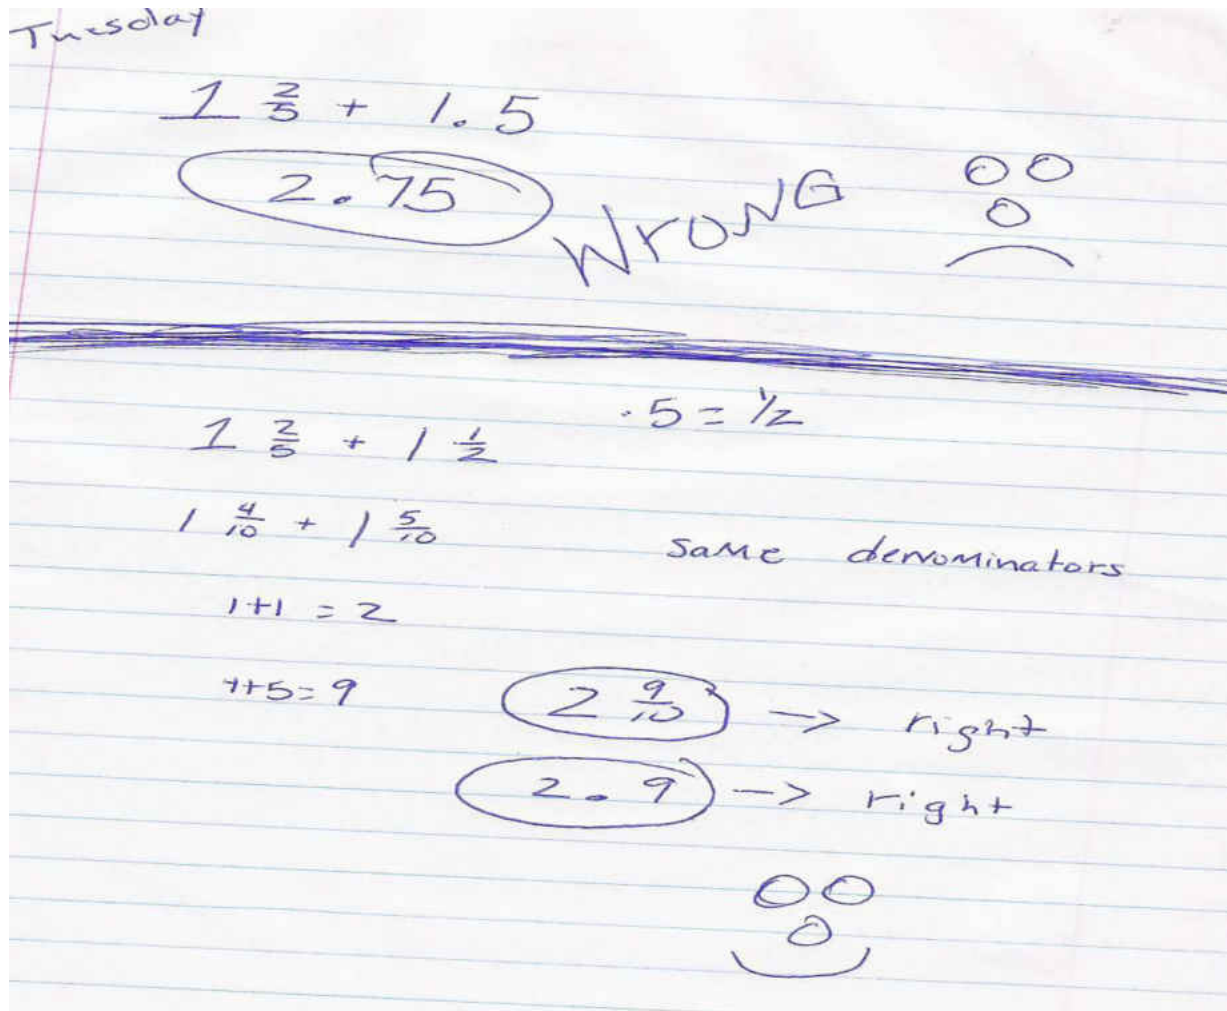 Tuesday
1 2/5 + 1.5
2.75 WrONG
.5 = 1/2
1 2/5 + 1 1/2
1 4/10 + 1 5/10 same denominators
1+1 = 2
4+5=9 2 9/10 -> right
2.9 -> right